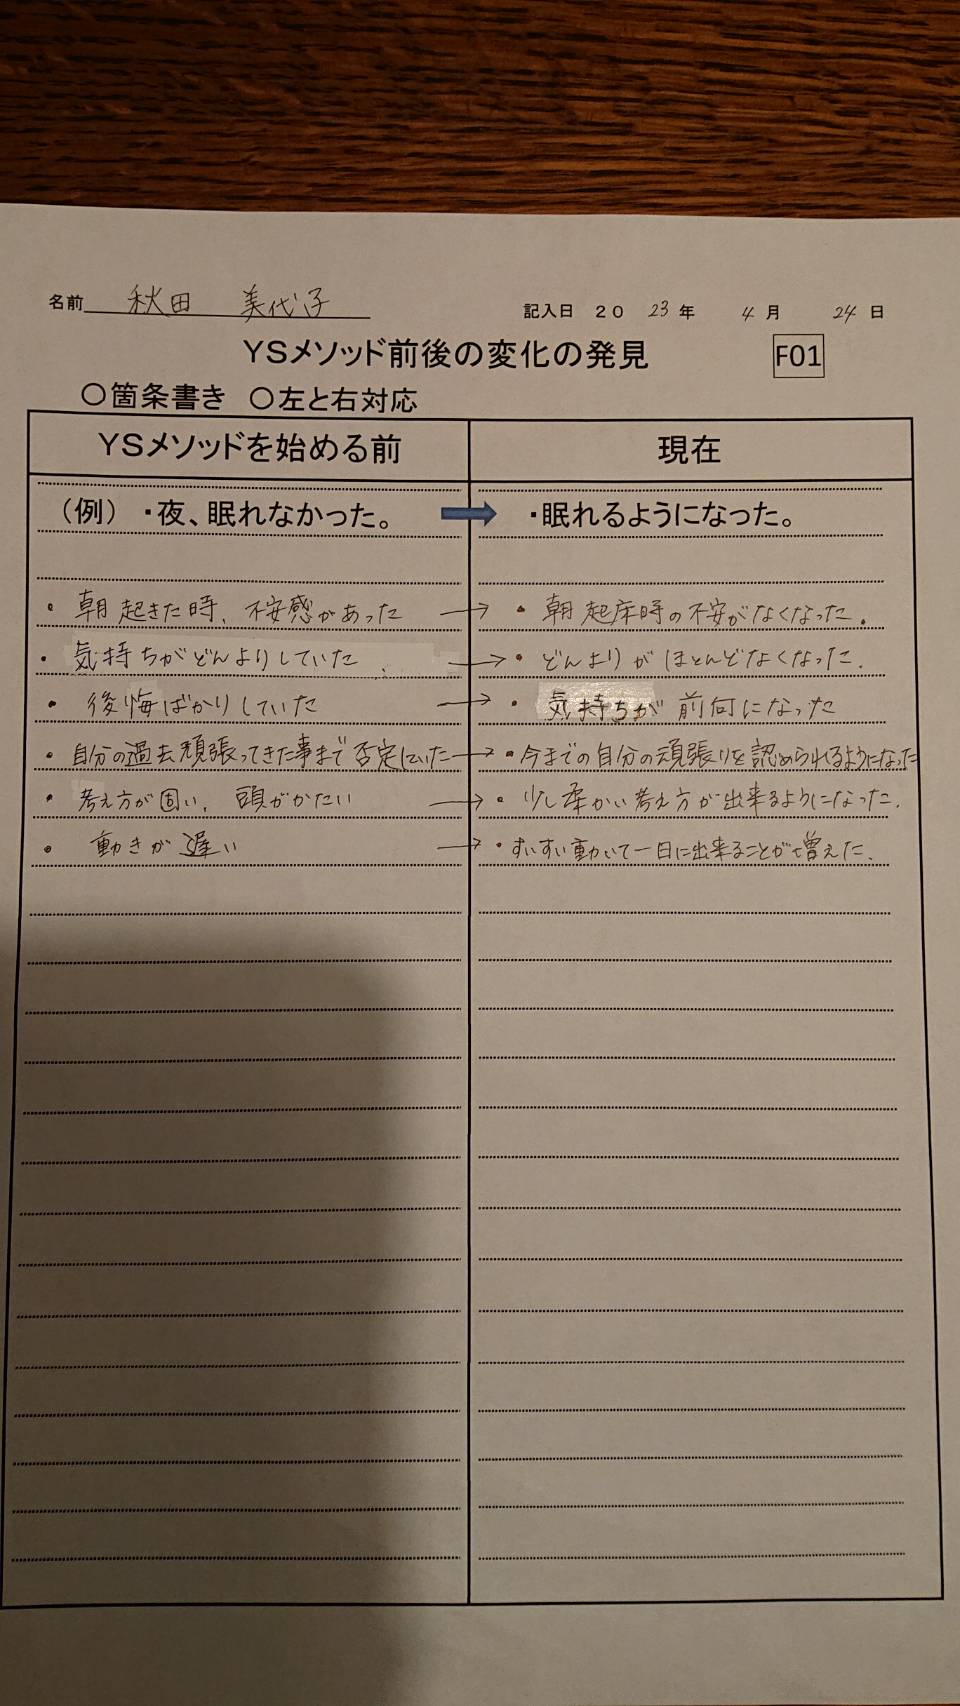 名前 秋田 美代子 記入日 2023年 4月 24日
YSメソッド前後の変化の発見 F01
○箇条書き ○左と右対応
YSメソッドを始める前 現在
（例）・夜、眠れなかった。 → ・眠れるようになった。
・朝起きた時、不安感があった → ・朝起床時の不安がなくなった。
・気持ちがどんよりしていた → ・どんよりがほとんどなくなった。
・後悔ばかりしていた → ・気持ちが前向になった
・自分の過去頑張ってきた事まで否定していた → ・今までの自分の頑張りを認められるようになった
・考え方が固い、頭がかたい → ・少し柔かい考え方が出来るようになった。
・動きが遅い → ・すいすい動いて一日に出来ることが増えた。